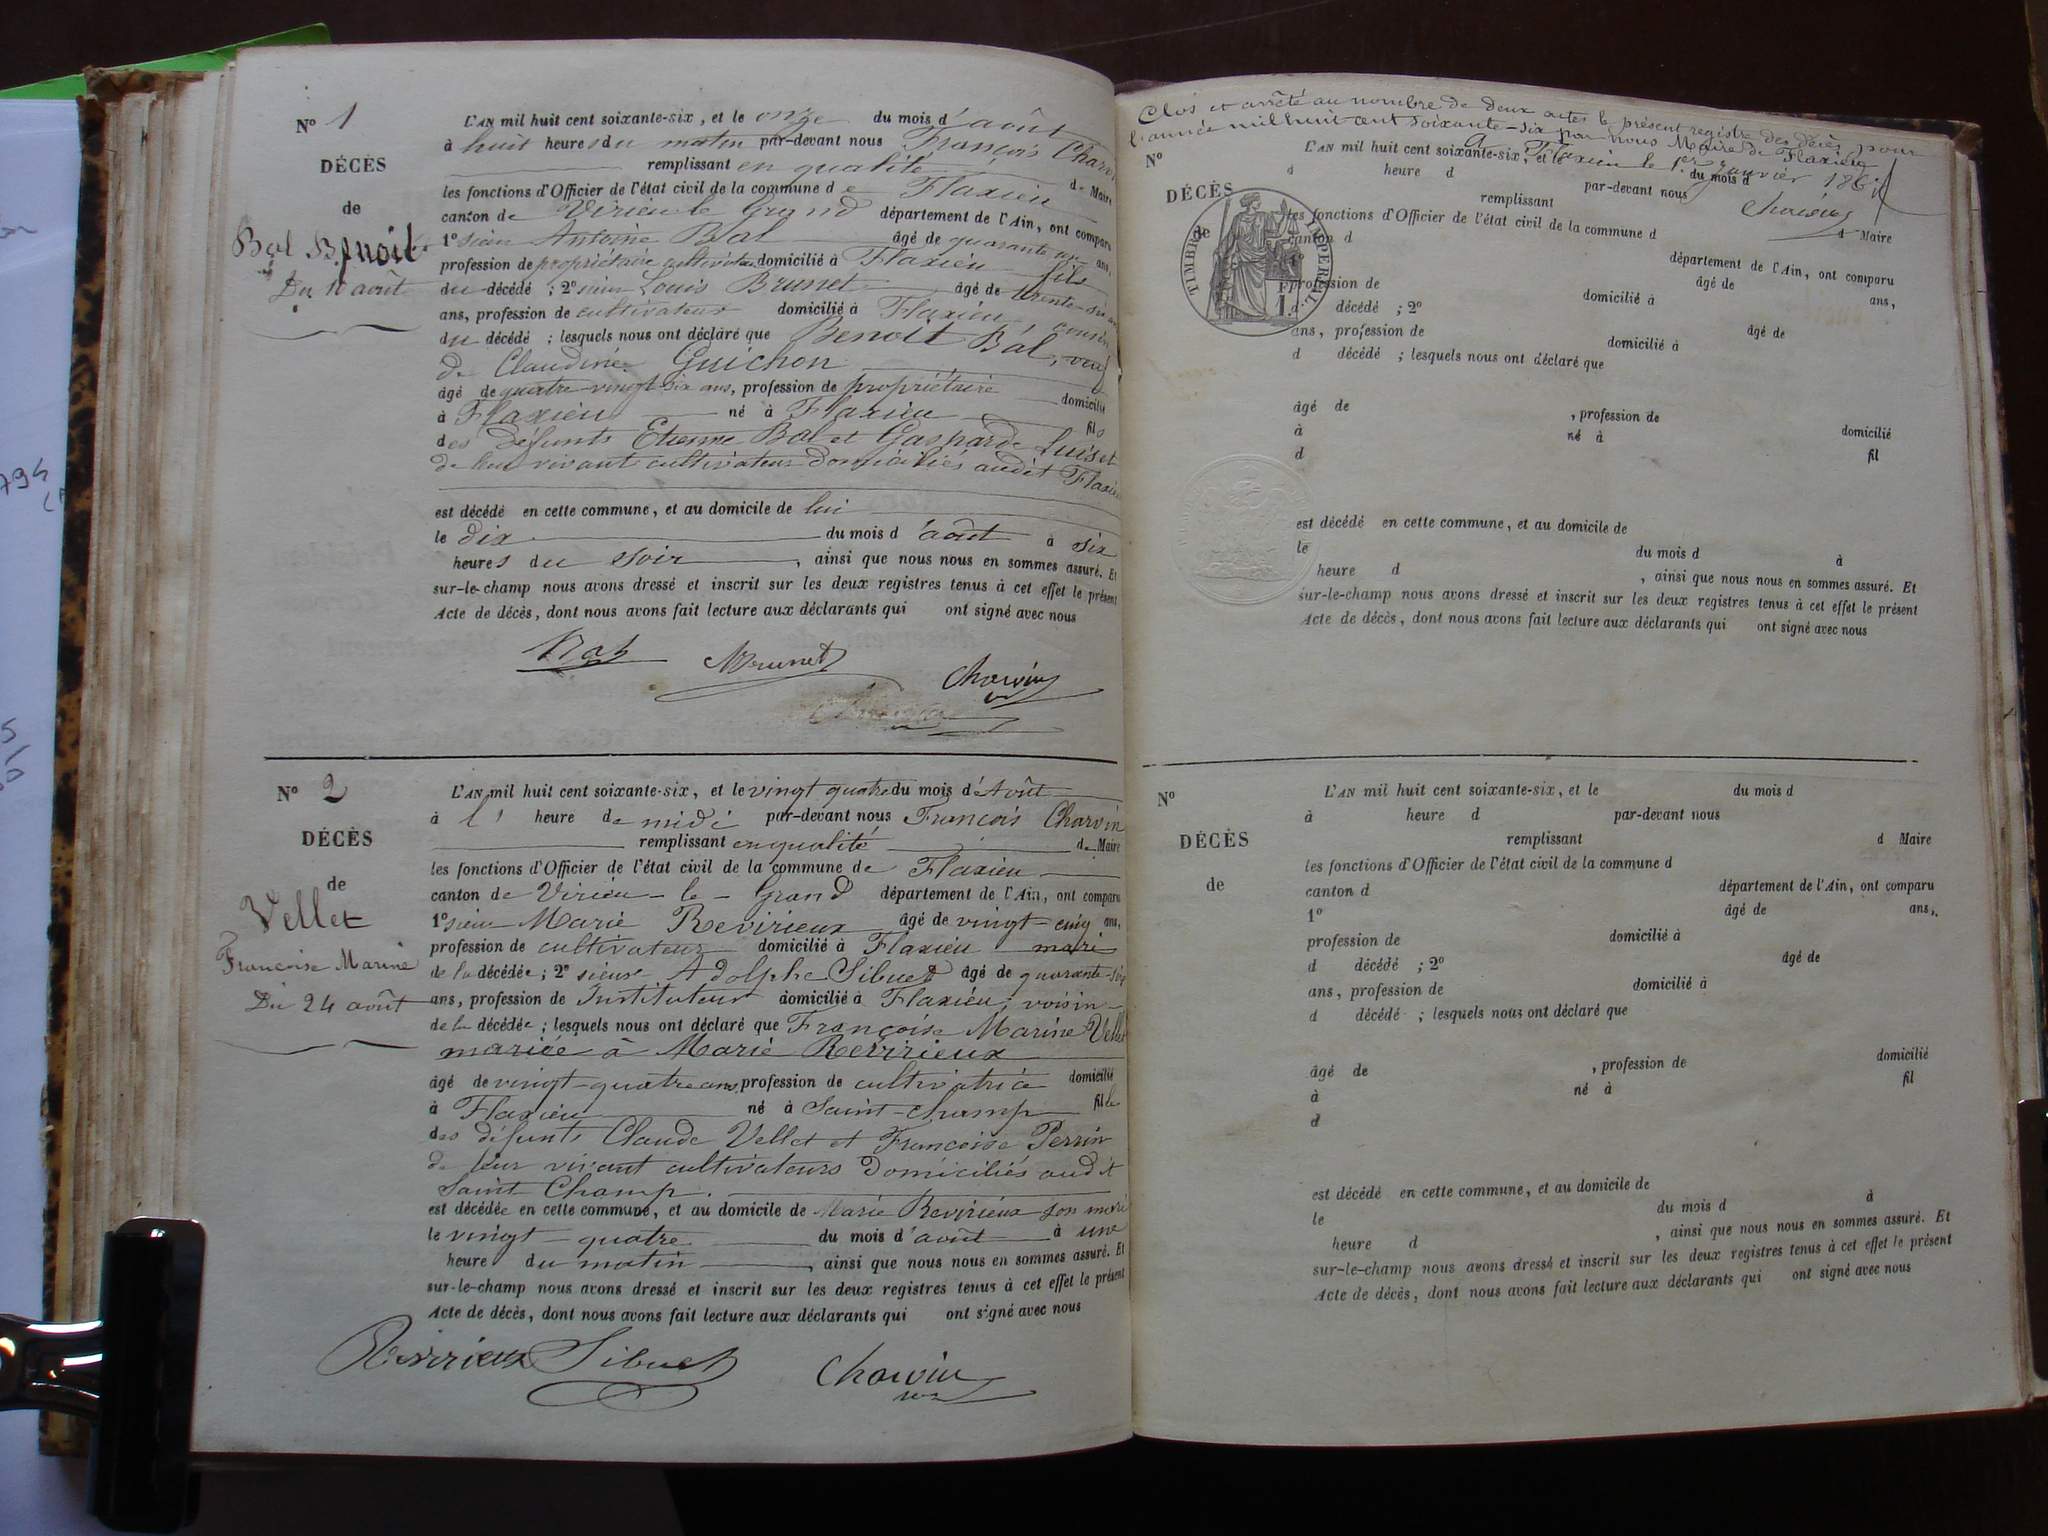 N° 1
DÉCÈS
de
Bal Benoit
Du 10 août
L'AN mil huit cent soixante-six, et le onze du mois d'août
à huit heures du matin par-devant nous François Charvin
remplissant en qualité de Maire
les fonctions d'Officier de l'état civil de la commune de Flaxieu
canton de Virieu le Grand département de l'Ain, ont comparu
1° sieur Antoine Bal âgé de quarante un ans,
profession de propriétaire cultivateur domicilié à Flaxieu fils
du décédé ; 2° sieur Louis Brunet âgé de trente-six
ans, profession de cultivateur domicilié à Flaxieu cousin
du décédé ; lesquels nous ont déclaré que Benoit Bal, veuf
de Claudine Guichon
âgé de quatre-vingt-six ans, profession de propriétaire domicilié
à Flaxieu né à Flaxieu fils
des défunts Etienne Bal et Gasparde Luiset
de leur vivant cultivateurs domiciliés audit Flaxieu
est décédé en cette commune, et au domicile de lui
le dix du mois d'août à six
heures du soir, ainsi que nous nous en sommes assuré. Et
sur-le-champ nous avons dressé et inscrit sur les deux registres tenus à cet effet le présent
Acte de décès, dont nous avons fait lecture aux déclarants qui ont signé avec nous
Bal Brunet Charvin
N° 2
DÉCÈS
de
Vellet
Françoise Marine
Du 24 août
L'AN mil huit cent soixante-six, et le vingt quatre du mois d'Août
à l' heure de midi par-devant nous François Charvin
remplissant en qualité de Maire
les fonctions d'Officier de l'état civil de la commune de Flaxieu
canton de Virieu-le-Grand département de l'Ain, ont comparu
1° sieur Marie Revirieux âgé de vingt-cinq ans,
profession de cultivateur domicilié à Flaxieu mari
de la décédée ; 2° sieur Adolphe Sibuet âgé de quarante-six
ans, profession de Instituteur domicilié à Flaxieu, voisin
de la décédée ; lesquels nous ont déclaré que Françoise Marine Vellet
mariée à Marie Revirieux
âgé de vingt-quatre ans, profession de cultivatrice domicilié
à Flaxieu né à Saint-Champ fille
des défunts Claude Vellet et Françoise Perrin
de leur vivant cultivateurs domiciliés audit
Saint Champ.
est décédée en cette commune, et au domicile de Marie Revirieux son mari
le vingt-quatre du mois d'août à une
heure du matin, ainsi que nous nous en sommes assuré. Et
sur-le-champ nous avons dressé et inscrit sur les deux registres tenus à cet effet le présent
Acte de décès, dont nous avons fait lecture aux déclarants qui ont signé avec nous
Revirieux Sibuet Charvin
Clos et arrêté au nombre de deux actes le présent registre des décès pour
l'année mil huit cent soixante-six par nous Maire de Flaxieu
A Flaxieu le 1er Janvier 1867
Charvin
N°
DÉCÈS
de
TIMBRE IMPERIAL
L'AN mil huit cent soixante-six, et le du mois d
à heure d par-devant nous
remplissant d Maire
les fonctions d'Officier de l'état civil de la commune d
canton d département de l'Ain, ont comparu
1° âgé de ans,
profession de domicilié à
d décédé ; 2° âgé de
ans, profession de domicilié à
d décédé ; lesquels nous ont déclaré que
âgé de , profession de domicilié
à né à fil
d
est décédé en cette commune, et au domicile de
le du mois d à
heure d , ainsi que nous nous en sommes assuré. Et
sur-le-champ nous avons dressé et inscrit sur les deux registres tenus à cet effet le présent
Acte de décès, dont nous avons fait lecture aux déclarants qui ont signé avec nous
N°
DÉCÈS
de
L'AN mil huit cent soixante-six, et le du mois d
à heure d par-devant nous
remplissant d Maire
les fonctions d'Officier de l'état civil de la commune d
canton d département de l'Ain, ont comparu
1° âgé de ans,
profession de domicilié à
d décédé ; 2° âgé de
ans, profession de domicilié à
d décédé ; lesquels nous ont déclaré que
âgé de , profession de domicilié
à né à fil
d
est décédé en cette commune, et au domicile de
le du mois d à
heure d , ainsi que nous nous en sommes assuré. Et
sur-le-champ nous avons dressé et inscrit sur les deux registres tenus à cet effet le présent
Acte de décès, dont nous avons fait lecture aux déclarants qui ont signé avec nous